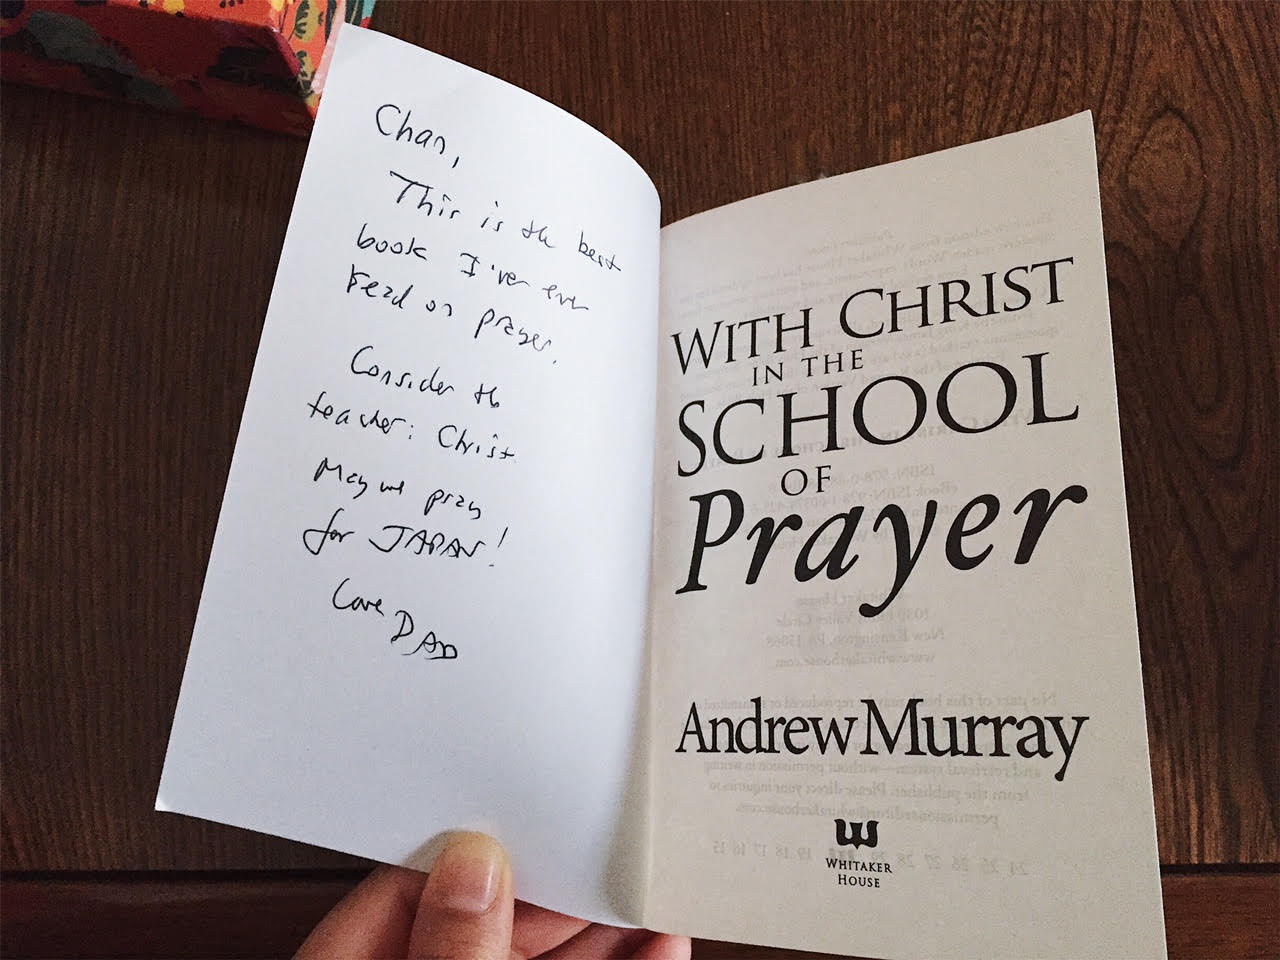 Chan,
This is the best
book I've ever
read on prayer.
Consider the
teacher: Christ.
May we pray
for JAPAN!
Love DAD
WITH CHRIST
IN THE
SCHOOL
OF
Prayer
Andrew Murray
WHITAKER
HOUSE